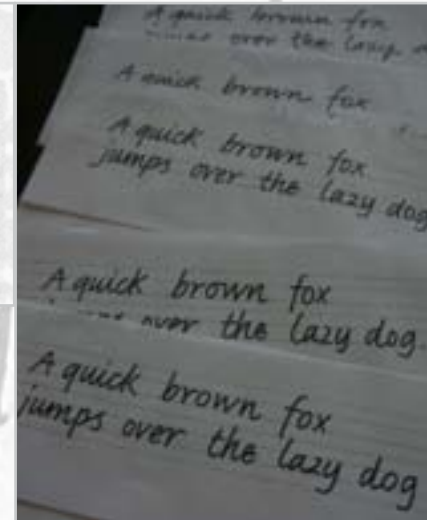 A quick brown fox
over the lazy
A quick brown fox
A quick brown fox
jumps over the lazy dog
A quick brown fox
over the lazy dog.
A quick brown fox
jumps over the lazy dog